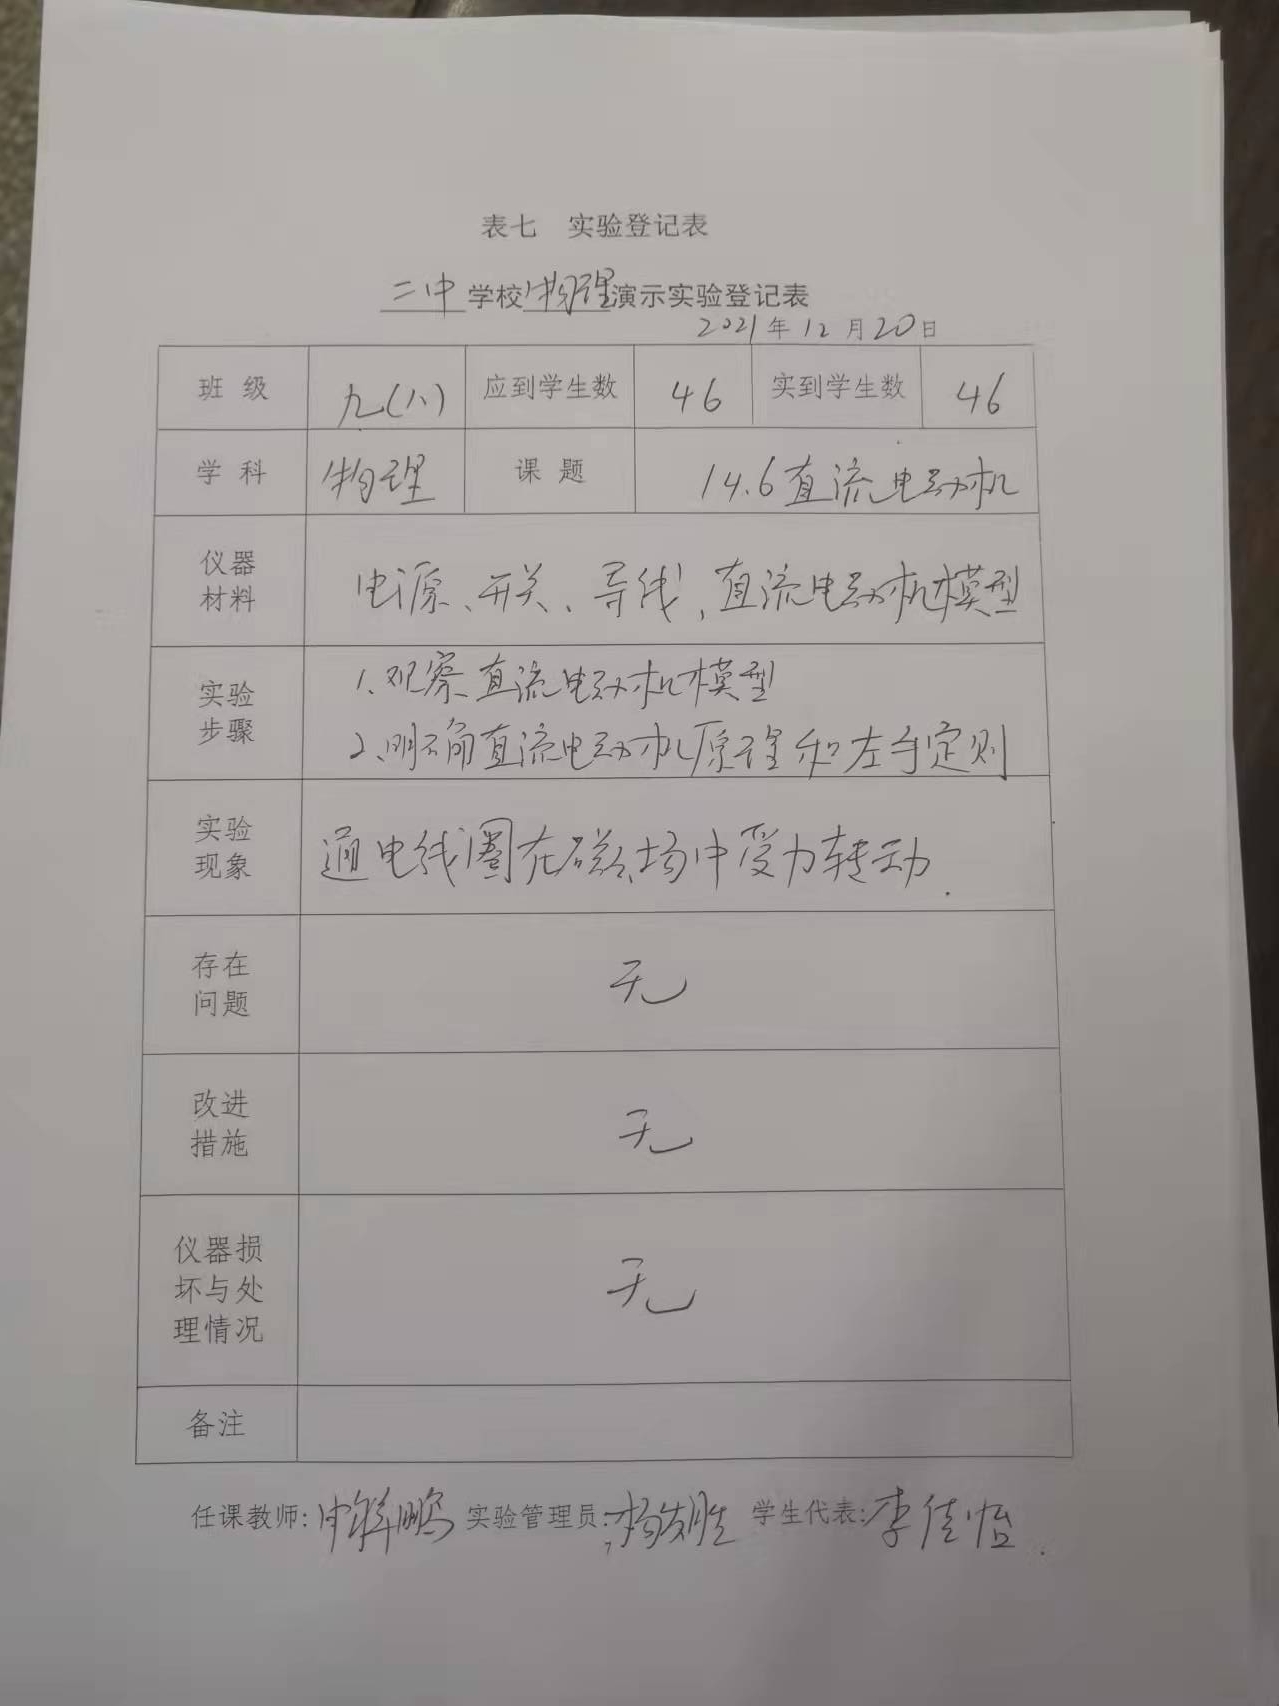 表七 实验登记表
二中学校物理演示实验登记表
2021年12月20日
班级 九(八) 应到学生数 46 实到学生数 46
学科 物理 课题 14.6直流电动机
仪器
材料
电源、开关、导线,直流电动机模型
实验
步骤
1、观察直流电动机模型
2、明确直流电动机原理和左手定则
实验
现象
通电线圈在磁场中受力转动.
存在
问题
无
改进
措施
无
仪器损
坏与处
理情况
无
备注
任课教师: 实验管理员: 学生代表:李佳怡.